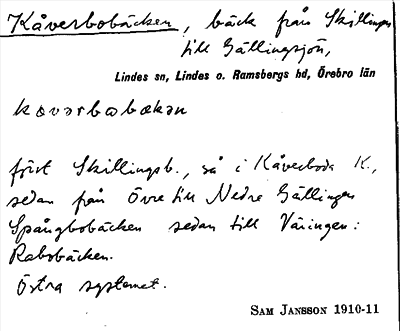 Kåverbobäcken, bäck från Skillingen
till Gällingsjön,
Lindes sn, Lindes o. Ramsbergs hd, Örebro län
kɷvərbɷbɛkən
först Skillingsb., så i Kåverboda K.,
sedan från Övre till Nedre Gällingen
Spångbobäcken sedan till Väringen:
Rabobäcken.
Östra systemet.
SAM JANSSON 1910-11